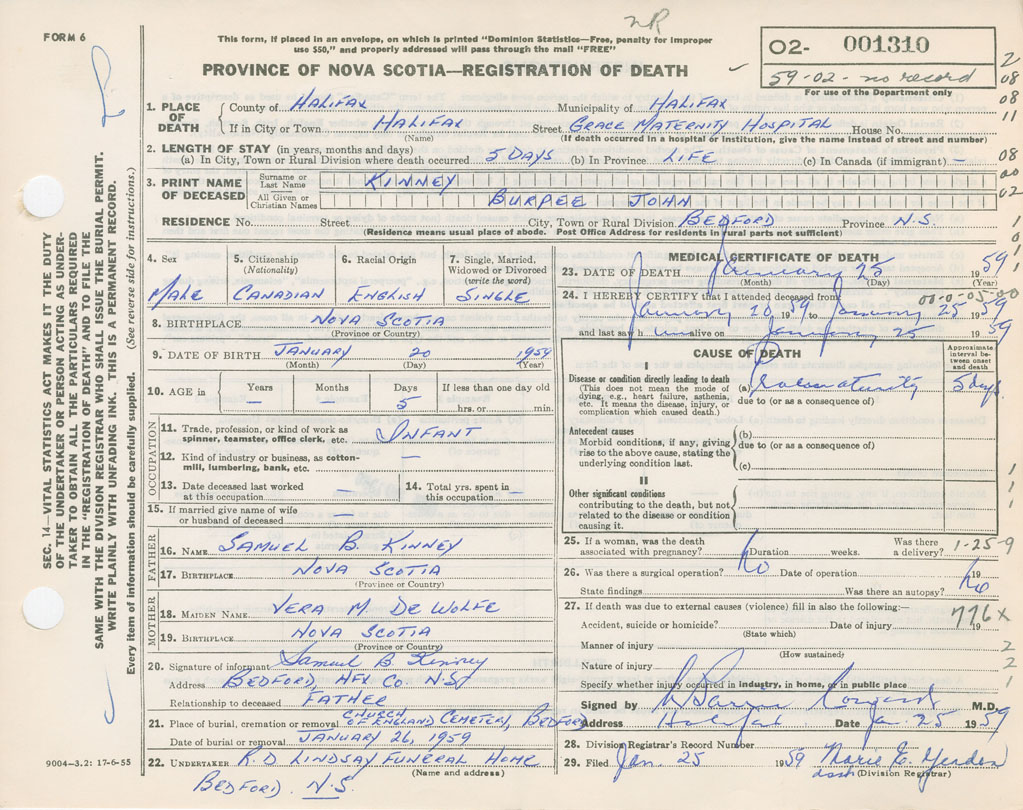 FORM 6
nR
This form, if placed in an envelope, on which is printed "Dominion Statistics—Free, penalty for improper
use $50," and properly addressed will pass through the mail "FREE"
PROVINCE OF NOVA SCOTIA—REGISTRATION OF DEATH
02- 001310
59-02- no record
For use of the Department only
2
08
08
11
08
00
02
SEC. 14—VITAL STATISTICS ACT MAKES IT THE DUTY
OF THE UNDERTAKER OR PERSON ACTING AS UNDER-
TAKER TO OBTAIN ALL THE PARTICULARS REQUIRED
IN THE "REGISTRATION OF DEATH" AND TO FILE THE
SAME WITH THE DIVISION REGISTRAR WHO SHALL ISSUE THE BURIAL PERMIT.
WRITE PLAINLY WITH UNFADING INK. THIS IS A PERMANENT RECORD.
Every item of information should be carefully supplied. (See reverse side for instructions.)
1. PLACE OF DEATH
County of HALIFAX Municipality of HALIFAX
If in City or Town HALIFAX Street GRACE MATERNITY HOSPITAL House No.
(Name) (If death occurred in a hospital or institution, give the name instead of street and number)
2. LENGTH OF STAY (in years, months and days)
(a) In City, Town or Rural Division where death occurred 5 DAYS (b) In Province LIFE (c) In Canada (if immigrant) —
3. PRINT NAME OF DECEASED
Surname or Last Name KINNEY
All Given or Christian Names BURPEE JOHN
RESIDENCE No. Street City, Town or Rural Division BEDFORD Province N.S.
(Residence means usual place of abode. Post Office Address for residents in rural parts not sufficient)
4. Sex
MALE
5. Citizenship
(Nationality)
CANADIAN
6. Racial Origin
ENGLISH
7. Single, Married,
Widowed or Divorced
(write the word)
SINGLE
8. BIRTHPLACE NOVA SCOTIA
(Province or Country)
9. DATE OF BIRTH JANUARY 20 1959
(Month) (Day) (Year)
10. AGE in
Years Months Days If less than one day old
— — 5 hrs. or min.
OCCUPATION
11. Trade, profession, or kind of work as
spinner, teamster, office clerk, etc. INFANT
12. Kind of industry or business, as cotton-
mill, lumbering, bank, etc. —
13. Date deceased last worked
at this occupation —
14. Total yrs. spent in
this occupation —
15. If married give name of wife
or husband of deceased —
FATHER
16. NAME SAMUEL B. KINNEY
17. BIRTHPLACE NOVA SCOTIA
(Province or Country)
MOTHER
18. MAIDEN NAME VERA M. DE WOLFE
19. BIRTHPLACE NOVA SCOTIA
(Province or Country)
20. Signature of informant Samuel B. Kinney
Address BEDFORD, HFX CO. N.S.
Relationship to deceased FATHER
21. Place of burial, cremation or removal CHURCH OF ENGLAND CEMETERY, BEDFORD
Date of burial or removal JANUARY 26, 1959
22. UNDERTAKER R. D. LINDSAY FUNERAL HOME
(Name and address)
BEDFORD. N.S.
9004-3.2: 17-6-55
MEDICAL CERTIFICATE OF DEATH
23. DATE OF DEATH January 25 1959
(Month) (Day) (Year)
00-0-05-00
24. I HEREBY CERTIFY that I attended deceased from
January 20 1959 to January 25 1959
and last saw him alive on January 25 1959
CAUSE OF DEATH
Approximate
interval be-
tween onset
and death
I
Disease or condition directly leading to death
(This does not mean the mode of
dying, e.g., heart failure, asthenia,
etc. It means the disease, injury, or
complication which caused death.)
(a) Prematurity 5 days
due to (or as a consequence of)
Antecedent causes
Morbid conditions, if any, giving
rise to the above cause, stating the
underlying condition last.
(b)
due to (or as a consequence of)
(c)
II
Other significant conditions
contributing to the death, but not
related to the disease or condition
causing it.
25. If a woman, was the death
associated with pregnancy? No Duration weeks. Was there
a delivery? 1-25-9
26. Was there a surgical operation? Date of operation 19
State findings Was there an autopsy? No
27. If death was due to external causes (violence) fill in also the following:—
Accident, suicide or homicide? Date of injury 19
776x
(State which)
Manner of injury
(How sustained)
Nature of injury
Specify whether injury occurred in industry, in home, or in public place
Signed by M.D.
Address Halifax Date Jan. 25 1959
28. Division Registrar's Record Number
29. Filed Jan. 25 1959 Marie E.
(Division Registrar)